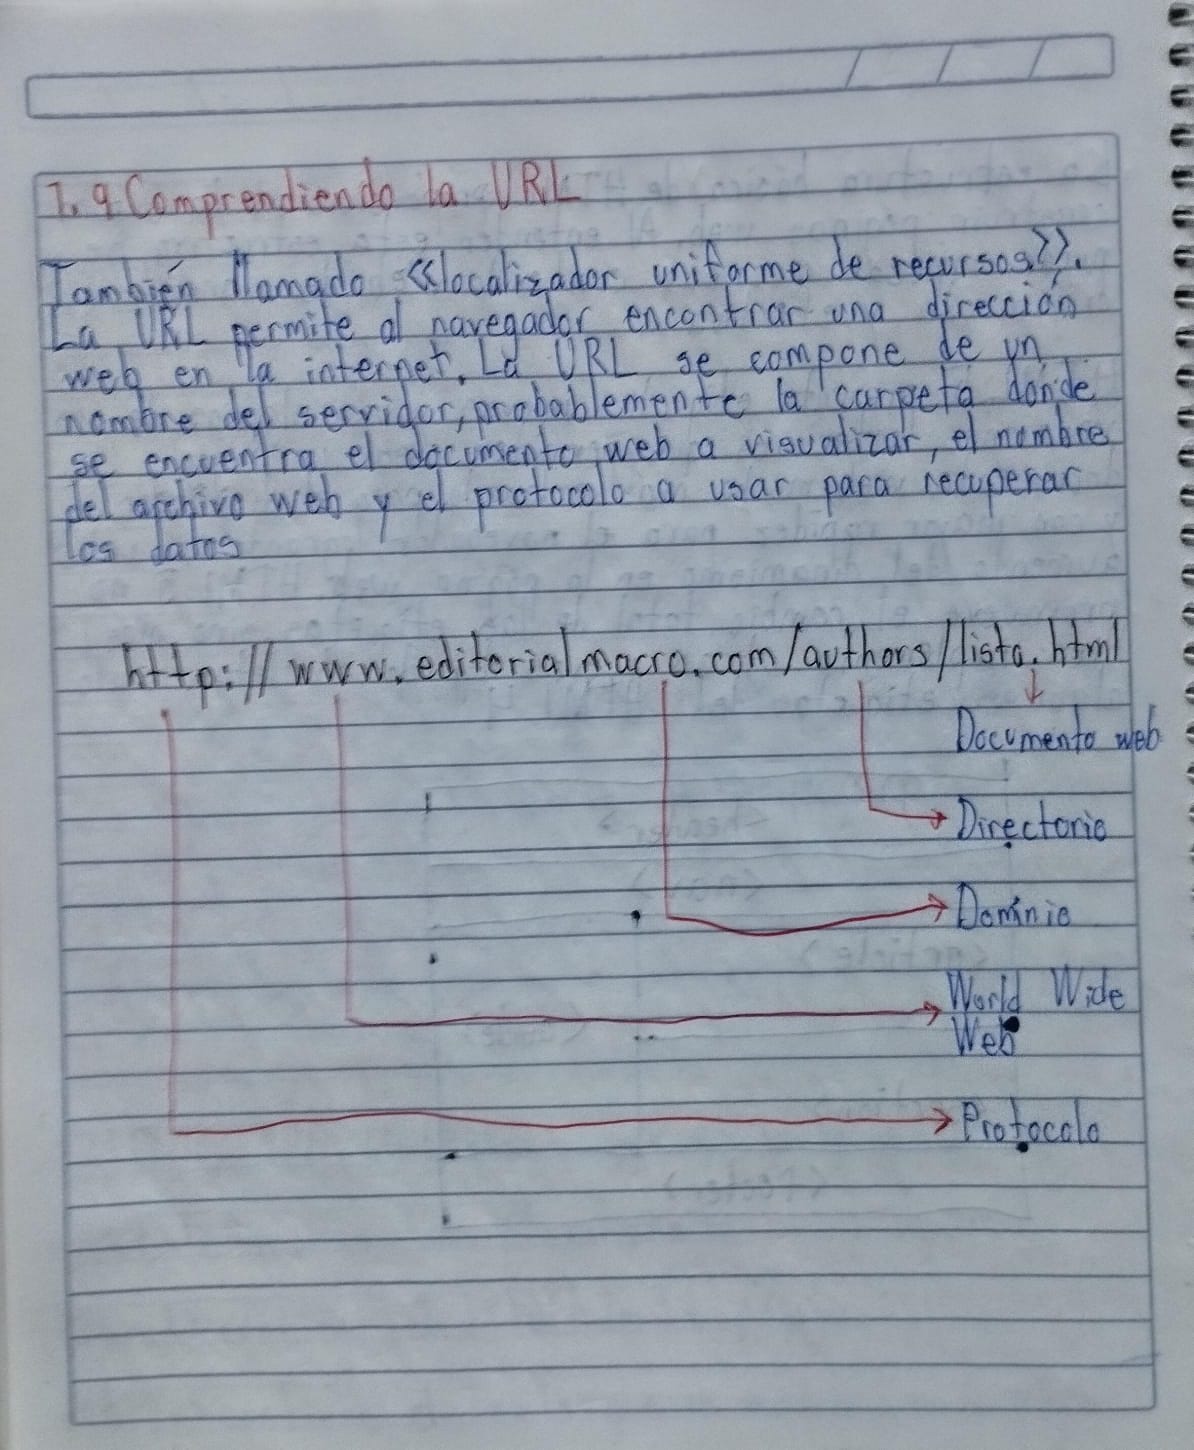 1.9 Comprendiendo la URL
También llamado «localizador uniforme de recursos».
La URL permite al navegador encontrar una dirección
web en la internet. La URL se compone de un
nombre del servidor, probablemente la carpeta donde
se encuentra el documento web a visualizar, el nombre
del archivo web y el protocolo a usar para recuperar
los datos
http://www.editorialmacro.com/authors/lista.html
Documento web
Directorio
Dominio
World Wide
Web
Protocolo